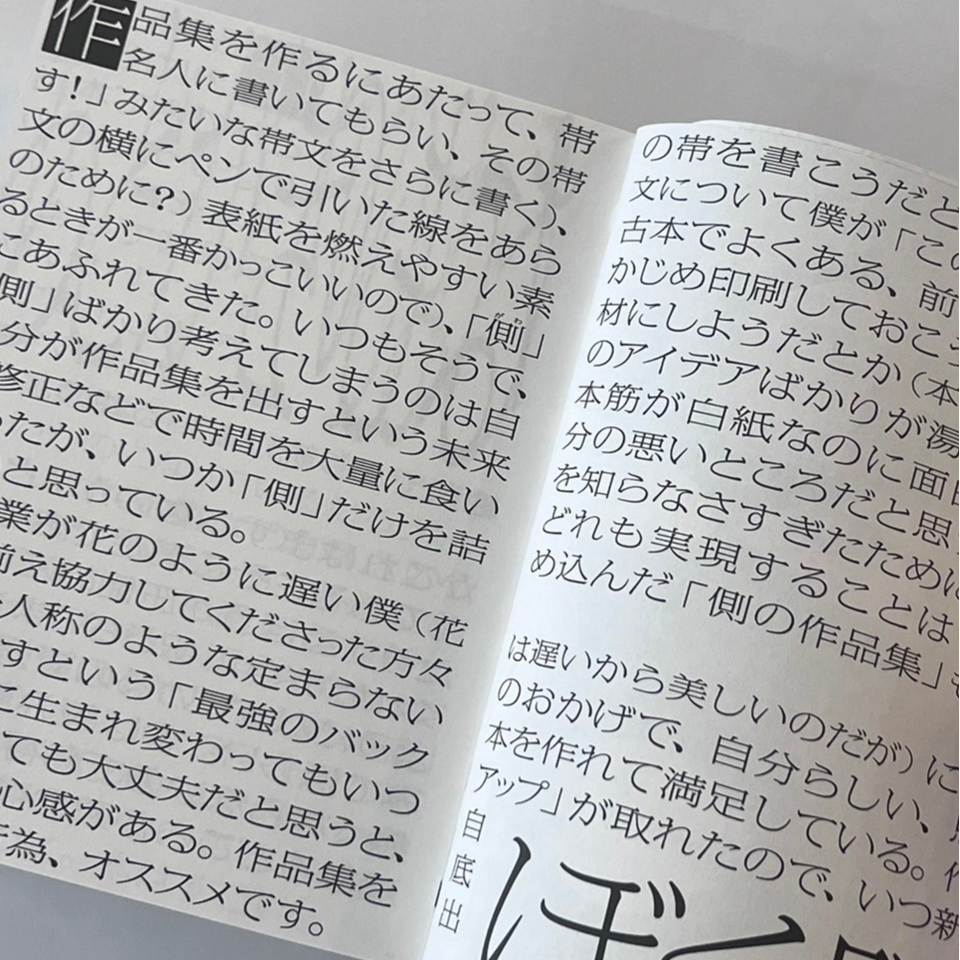 作品集を作るにあたって、帯
名人に書いてもらい、その帯
す!」みたいな帯文をさらに書く)、
文の横にペンで引いた線をあら
のために?)表紙を燃えやすい素
るときが一番かっこいいので)、「側」
にあふれてきた。いつもそうで、
側」ばかり考えてしまうのは自
分が作品集を出すという未来
修正などで時間を大量に食い
ったが、いつか「側」だけを詰
と思っている。
業が花のように遅い僕(花
前え協力してくださった方々
人称のような定まらない
すという「最強のバック
に生まれ変わってもいつ
ても大丈夫だと思うと、
心感がある。作品集を
行為、オススメです。
の帯を書こうだと
文について僕が「この
古本でよくある、前
かじめ印刷しておこう
材にしようだとか(本
のアイデアばかりが湯
本筋が白紙なのに面白
分の悪いところだと思
を知らなさすぎたために
どれも実現することは
め込んだ「側の作品集」も
は遅いから美しいのだが)に
のおかげで、自分らしい、
本を作れて満足している。
アップ」が取れたので、いつ新
自
底
出
ぼく